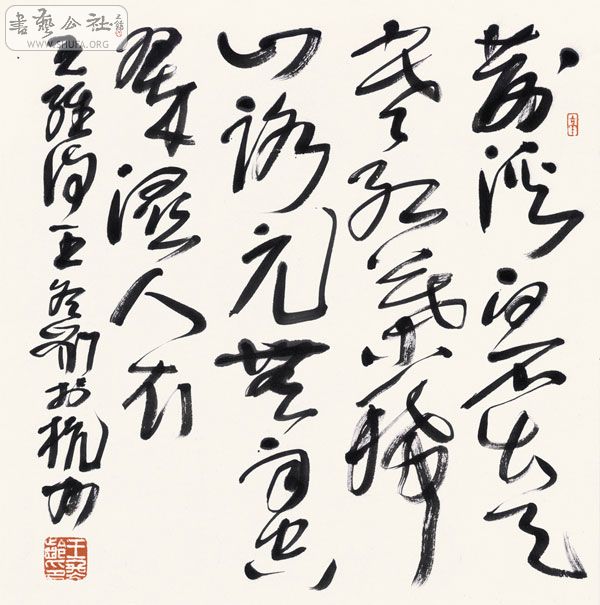 書藝公社
WWW.SHUFA.ORG
荆溪白石出天
寒紅葉稀
山路元無雨空
翠濕人衣
王維詩王冬齡於杭州
王冬齡印